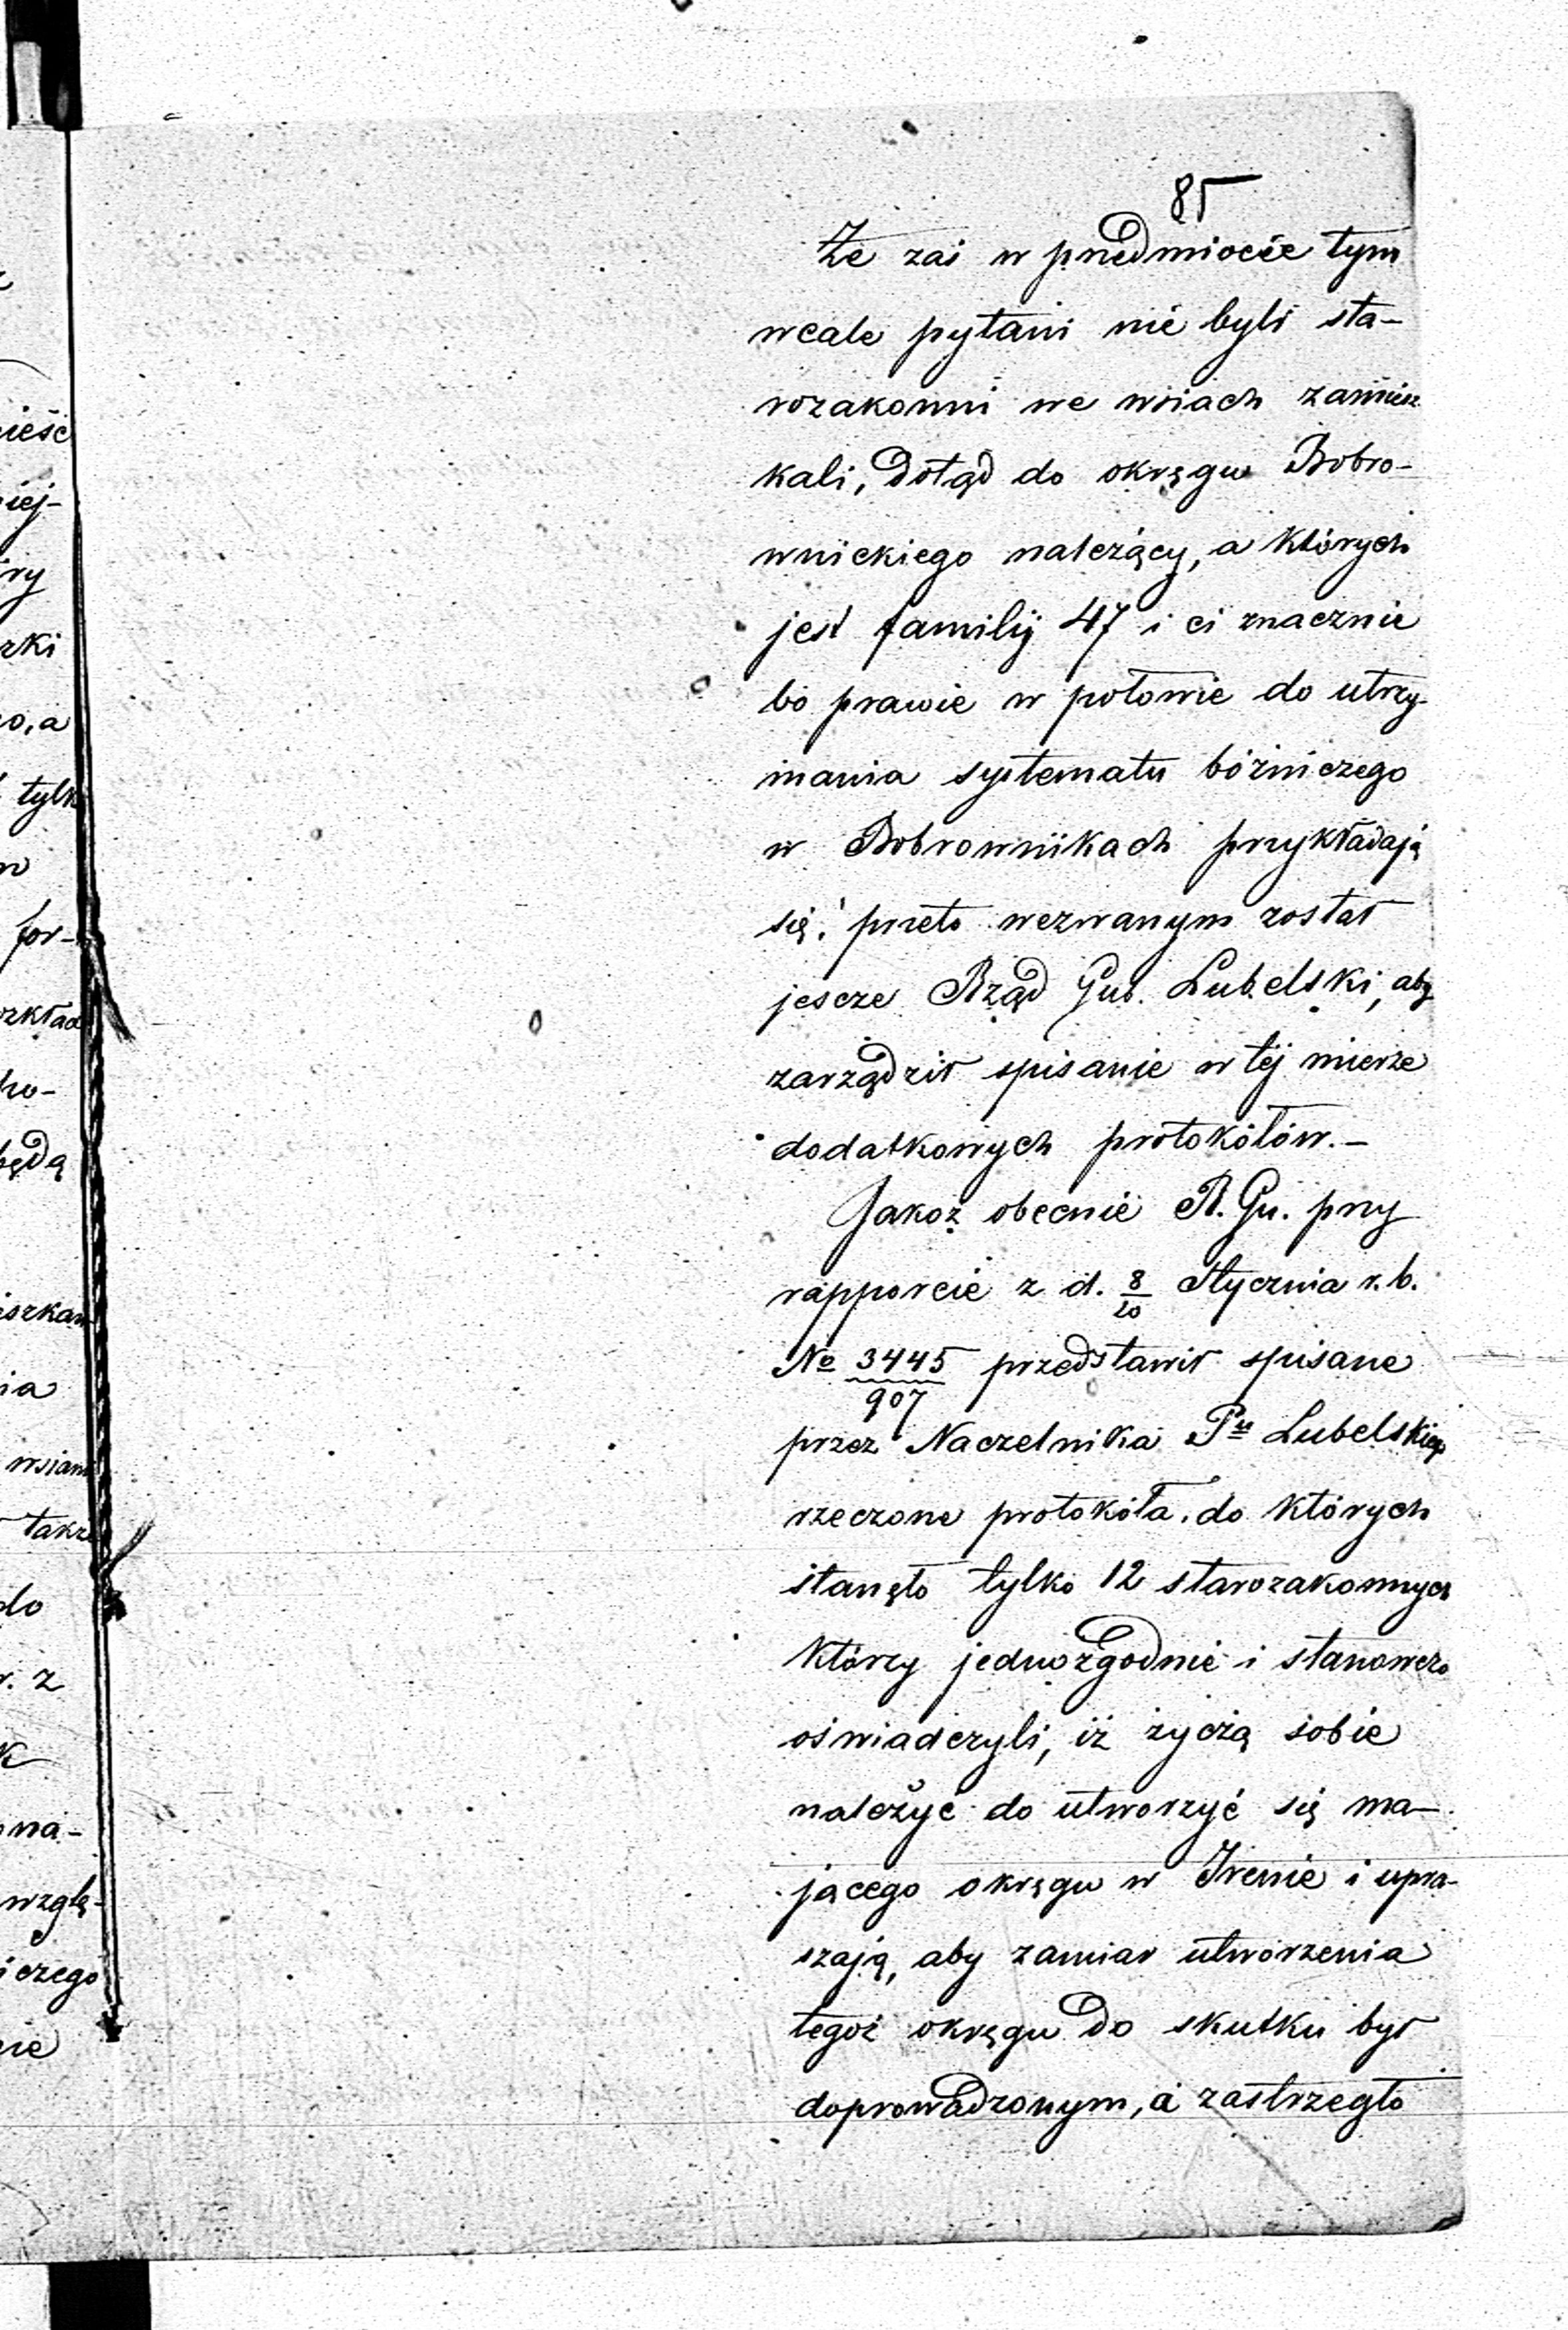 85
Że zaś w przedmiocie tym
wcale pytani nie byli sta-
rozakonni we wsiach zamiesz
kali, dotąd do okręgu Bobro-
wnickiego należący, a których
jest familij 47 i ci znacznie
bo prawie w połowie do utrzy-
mania systematu bóżniczego
w Bobrownikach przykładają
się; przeto wezwanym został
jescze Rząd Gub. Lubelski, aby
zarządził spisanie w téj mierze
dodatkowych protokółów.-
Jakoż obecnie R. Gu. przy
rapporcie z d. 8/20 Stycznia r. b.
No 3445/907 przedstawił spisane
przez Naczelnika Pu Lubelskiego
rzeczone protokóła, do których
stanęło tylko 12 starozakonnych
którzy jednozgodnie i stanowczo
oświadczyli, iż życzą sobie
należyć do utworzyć się ma-
jącego okręgu w Irenie i upra-
szają, aby zamiar utworzenia
tegoż okręgu do skutku był
doprowadzonym, a zastrzegło
ieść
iej-
ry
rki
o, a
tylk
for-
rzkład
ho-
będą
iszkan
ia
wsiam
takż
do
r. z
na-
wzglę-
iczego
ie